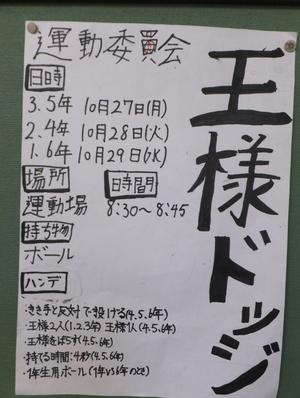 王様ドッジ
運動委員会
日時
3.5年 10月27日(月)
2.4年 10月28日(火)
1.6年 10月29日(水)
場所 時間
運動場 8:30〜8:45
持ち物
ボール
ハンデ
・きき手と反対で投げる(4.5.6年)
・王様2人(1.2.3年) 王様1人(4.5.6年)
・王様をばらす(4.5.6年)
・持てる時間:4秒(4.5.6年)
・1年生用ボール(1年vs6年のとき)